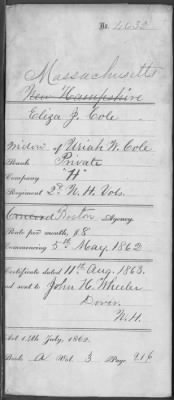 No. 4632
Massachusetts
New Hampshire
Eliza J. Cole
widow of Uriah W. Cole
Rank Private
Company "H"
Regiment 2d N. H. Vols.
Concord Boston Agency
Rate per month, $8
Commencing 5th May, 1862
Certificate dated 11th Aug. 1863.
and sent to John H. Wheeler
Dover,
N.H.
Act 14th July, 1862.
Book A Vol. 3 Page 216